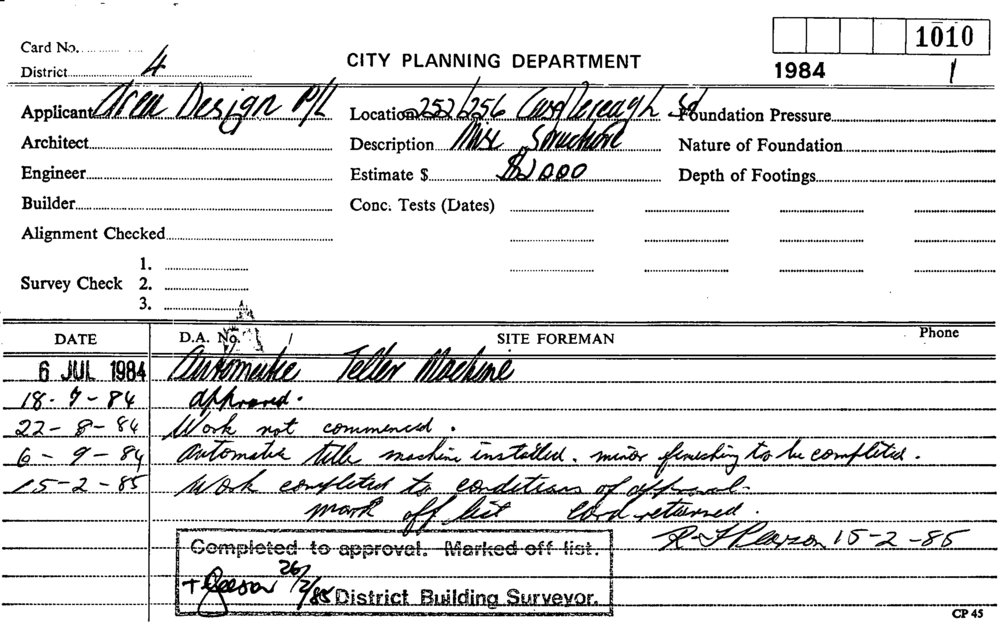 1010
Card No.
District 4
CITY PLANNING DEPARTMENT
1984 1
Applicant Area Design P/L
Location 252/256 Castlereagh St
Foundation Pressure
Architect
Description Misc Structure
Nature of Foundation
Engineer
Estimate $ $2000
Depth of Footings
Builder
Conc. Tests (Dates)
Alignment Checked
Survey Check
1.
2.
3.
DATE D.A. No. SITE FOREMAN Phone
6 JUL 1984 Automatic Teller Machine
18-7-84 approved.
22-8-84 Work not commenced.
6-9-84 Automatic teller machine installed. minor finishing to be completed.
15-2-85 Work completed to conditions of approval.
mark off list card returned.
15-2-85
Completed to approval. Marked off list.
26/2/85 District Building Surveyor.
CP 45